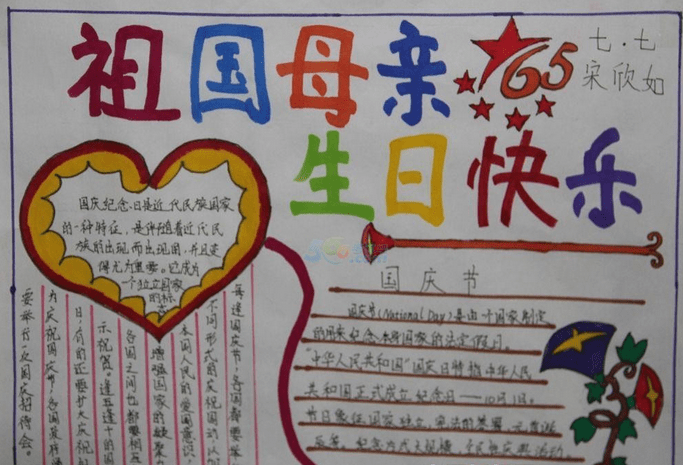 祖国母亲
65
七.七
宋欣如
生日快乐
国庆纪念日是近代民族国家
的一种特征,是伴随着近代民
族的出现而出现的,并且变
得尤为重要。它成为
一个独立国家
的标
志
国庆节
国庆节(National Day)是由一个国家制定
的用来纪念本身国家的法定假日
"中华人民共和国"国庆日特指中华人民
共和国正式成立纪念日——10月1日。
节日象征国家独立,宪法的签署,元首诞
每逢国庆节,各国都要举
不同形式的庆祝活动,以加
本国人民的爱国意识,
增强国家的凝聚力
各国之间也都要相互
示祝贺。逢五逢十的国
日,有的还要扩大庆祝
为庆祝国庆节,各国政府
要举行一次国庆招待会。